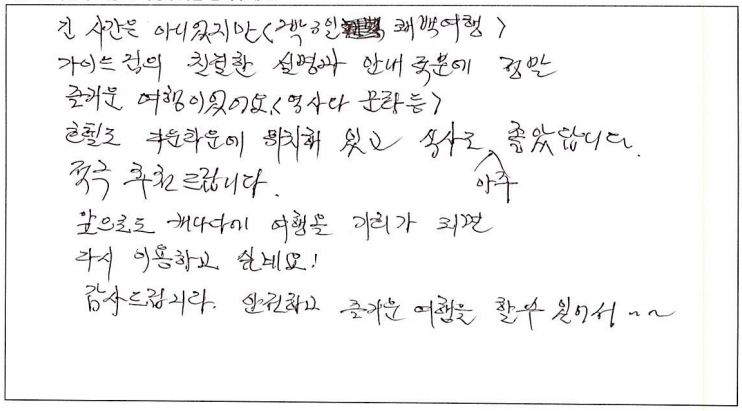 긴 시간은 아니었지만 <2박 3일 퀘백여행>
가이드님의 친절한 설명과 안내 덕분에 정말
즐거운 여행이었어요. <역사다 문화등>
호텔도 다운타운에 위치해 있고 식사도 아주 좋았답니다.
적극 추천드립니다.
앞으로도 캐나다에 여행올 기회가 되면
다시 이용하고 싶네요!
감사드립니다. 안전하고 즐거운 여행을 할수 있어서 ~~